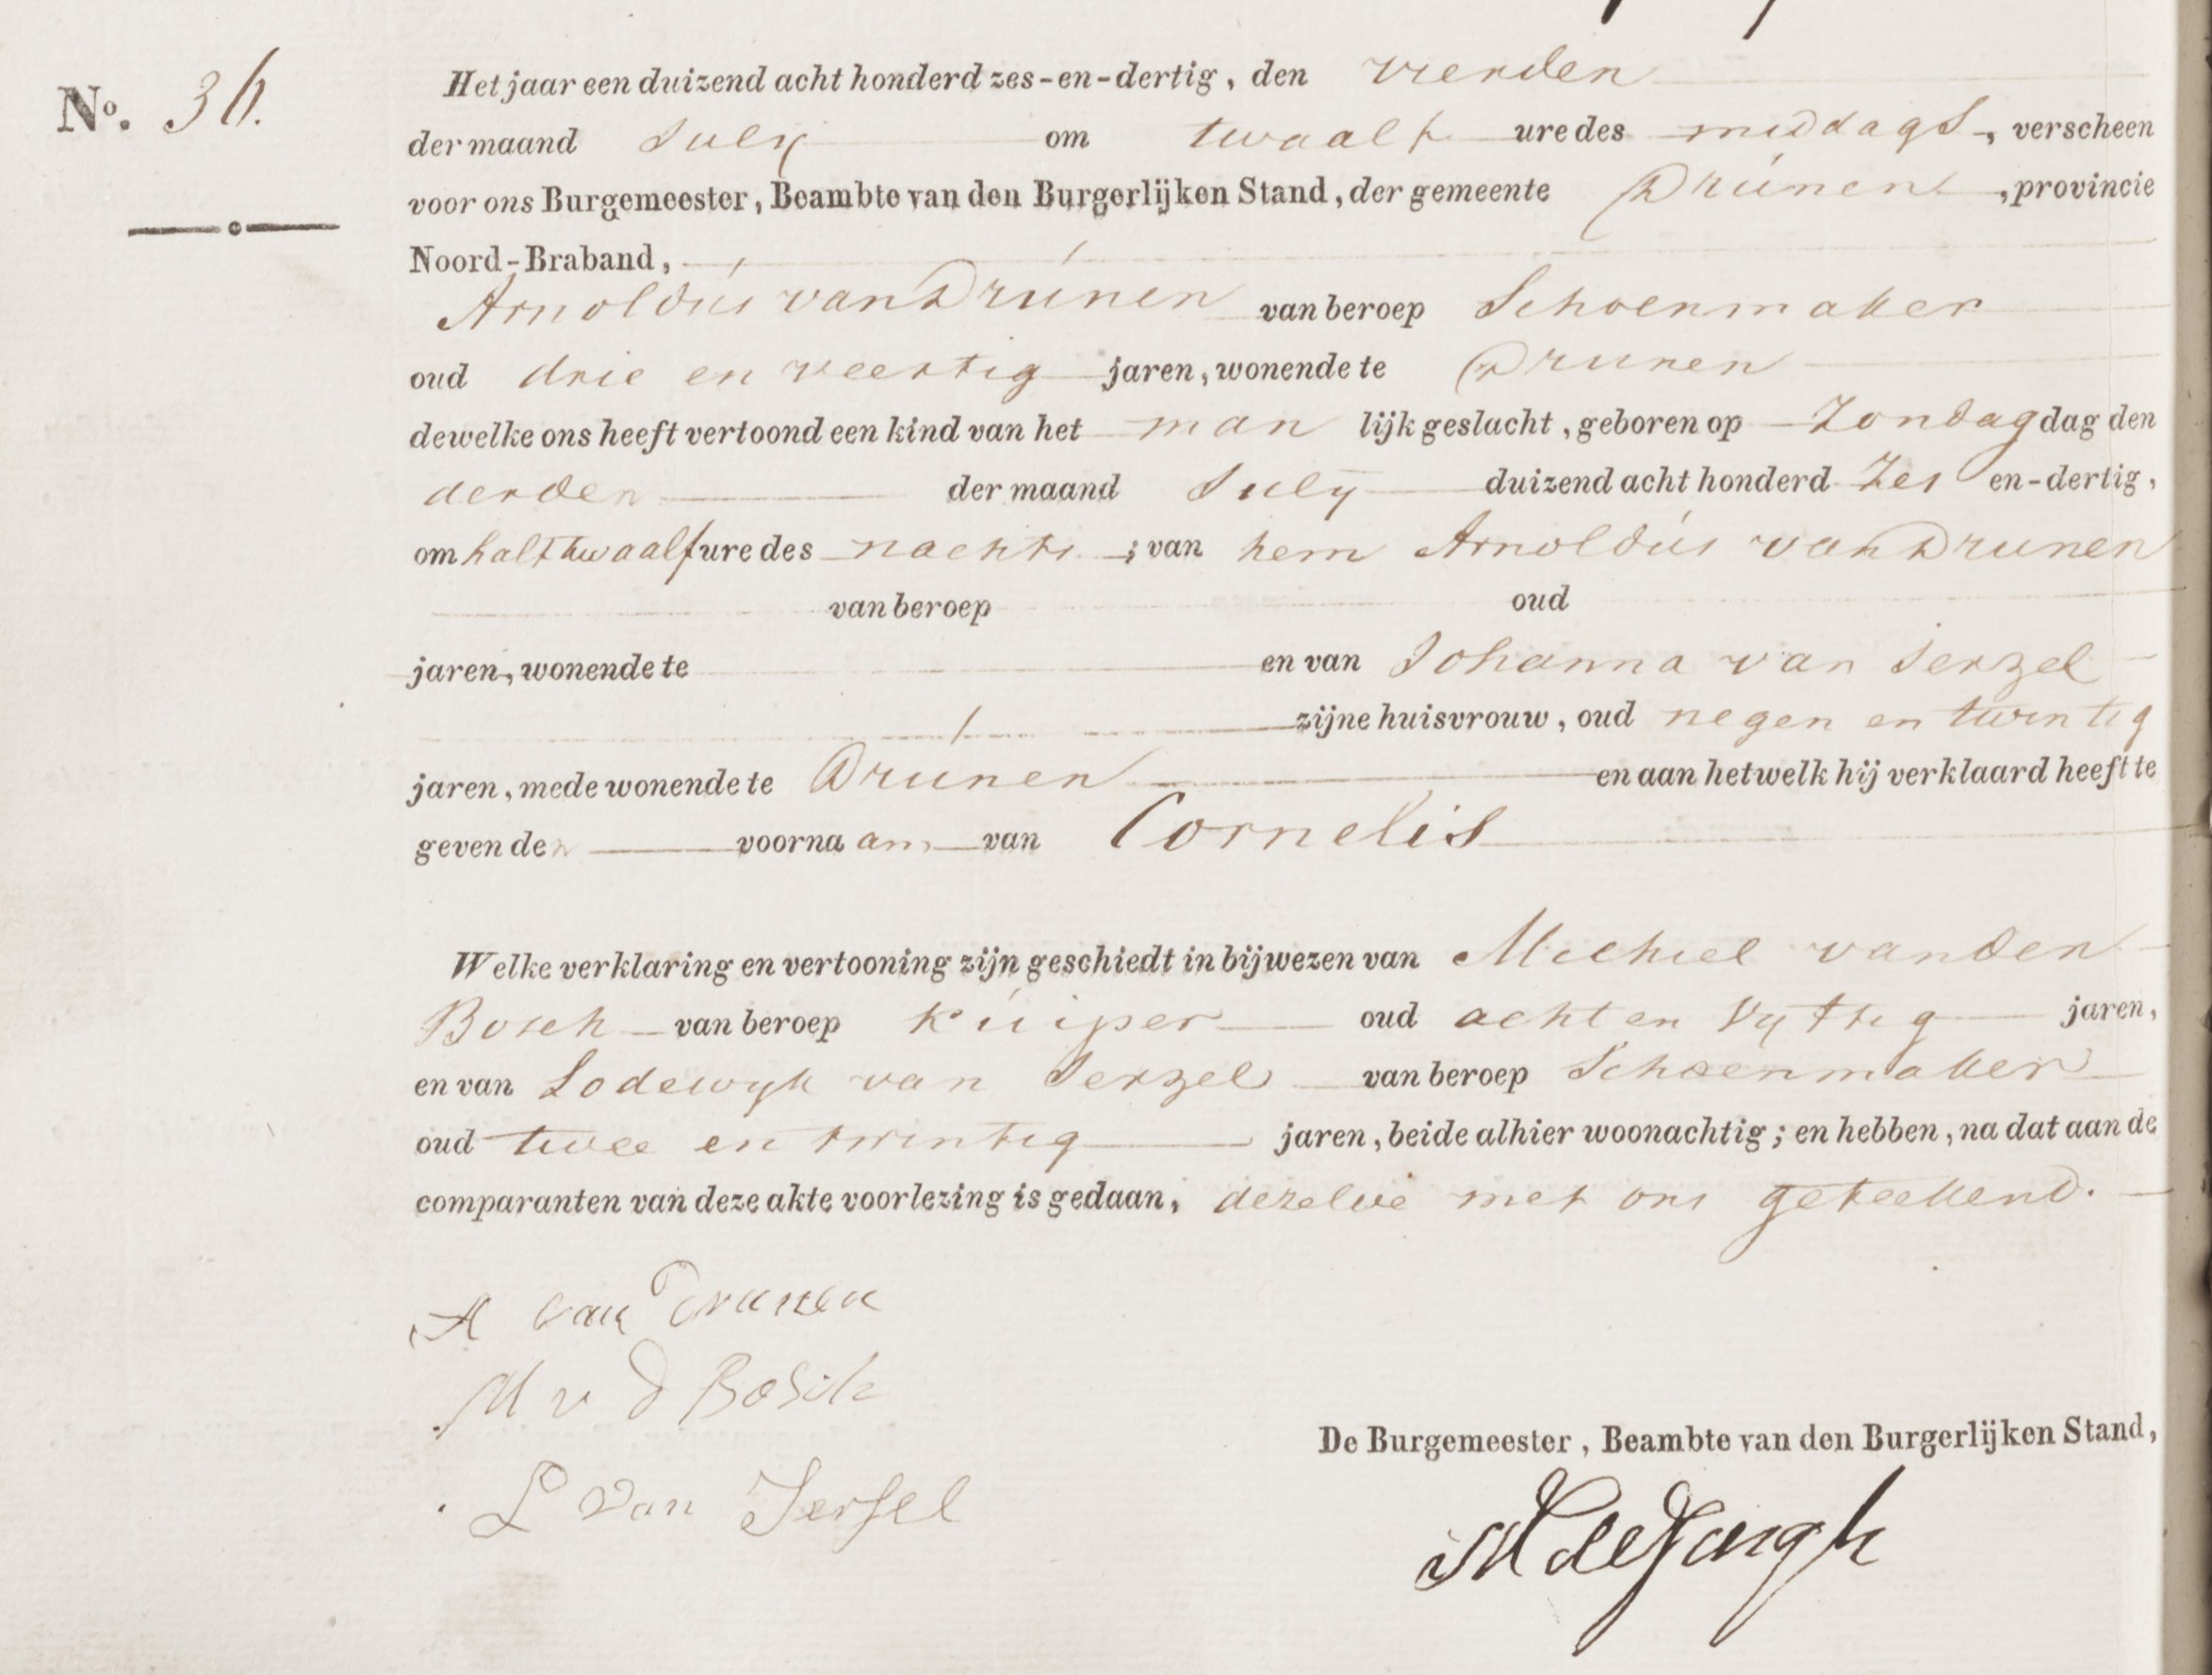 No. 36.
Het jaar een duizend acht honderd zes-en-dertig, den vierden
der maand July om twaalf ure des middags, verscheen
voor ons Burgemeester, Beambte van den Burgerlijken Stand, der gemeente Drunen, provincie
Noord-Braband,
Arnoldus van Drunen van beroep Schoenmaker
oud drie en veertig jaren, wonende te Drunen
dewelke ons heeft vertoond een kind van het man lijk geslacht, geboren op Zondag dag den
derden der maand July duizend acht honderd Zes en-dertig,
om half twaalf ure des nachts ; van hem Arnoldus van Drunen
van beroep oud
jaren, wonende te en van Johanna van Jerzel
zijne huisvrouw, oud negen en twintig
jaren, mede wonende te Drunen en aan hetwelk hij verklaard heeft te
geven den voorna am van Cornelis
Welke verklaring en vertooning zijn geschiedt in bijwezen van Michiel van den
Bosch van beroep kuiper oud acht en vyftig jaren,
en van Lodewyk van Jerzel van beroep Schoenmaker
oud twee en twintig jaren, beide alhier woonachtig; en hebben, na dat aan de
comparanten van deze akte voorlezing is gedaan, dezelve met ons geteekend.
A van Drunen
M v d Bosch
L van Jersel
De Burgemeester, Beambte van den Burgerlijken Stand,